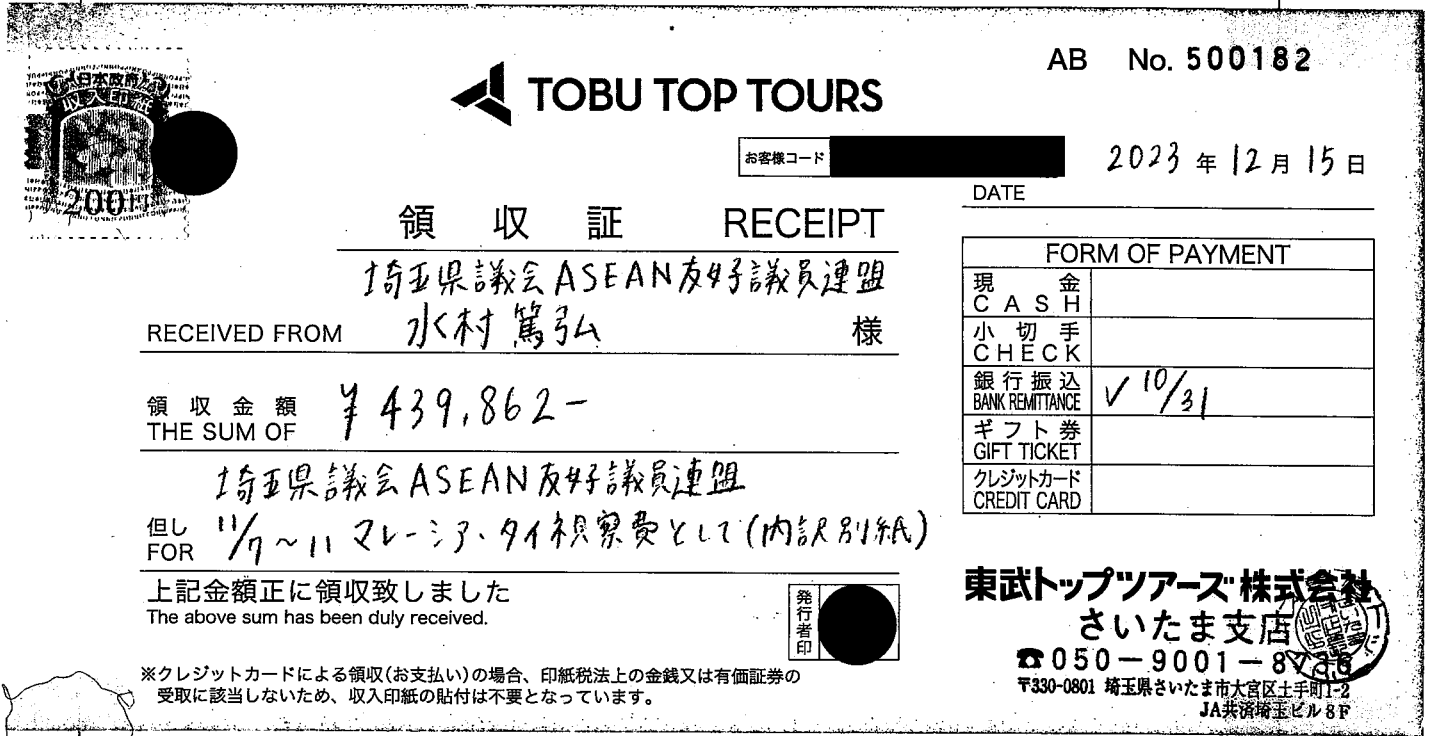 AB No. 500182
日本政府
収入印紙
200円
TOBU TOP TOURS
お客様コード
2023年12月15日
DATE
領収証 RECEIPT
埼玉県議会ASEAN友好議員連盟
RECEIVED FROM 水村篤弘 様
領収金額 ¥439,862-
THE SUM OF
埼玉県議会ASEAN友好議員連盟
但し 11/7~11 マレーシア・タイ視察費として(内訳別紙)
FOR
上記金額正に領収致しました
The above sum has been duly received.
発行者印
※クレジットカードによる領収(お支払い)の場合、印紙税法上の金銭又は有価証券の
受取に該当しないため、収入印紙の貼付は不要となっています。
FORM OF PAYMENT
現金
CASH
小切手
CHECK
銀行振込 ✓ 10/31
BANK REMITTANCE
ギフト券
GIFT TICKET
クレジットカード
CREDIT CARD
東武トップツアーズ株式会社
さいたま支店
☎050-9001-8736
〒330-0801 埼玉県さいたま市大宮区土手町1-2
JA共済埼玉ビル8F